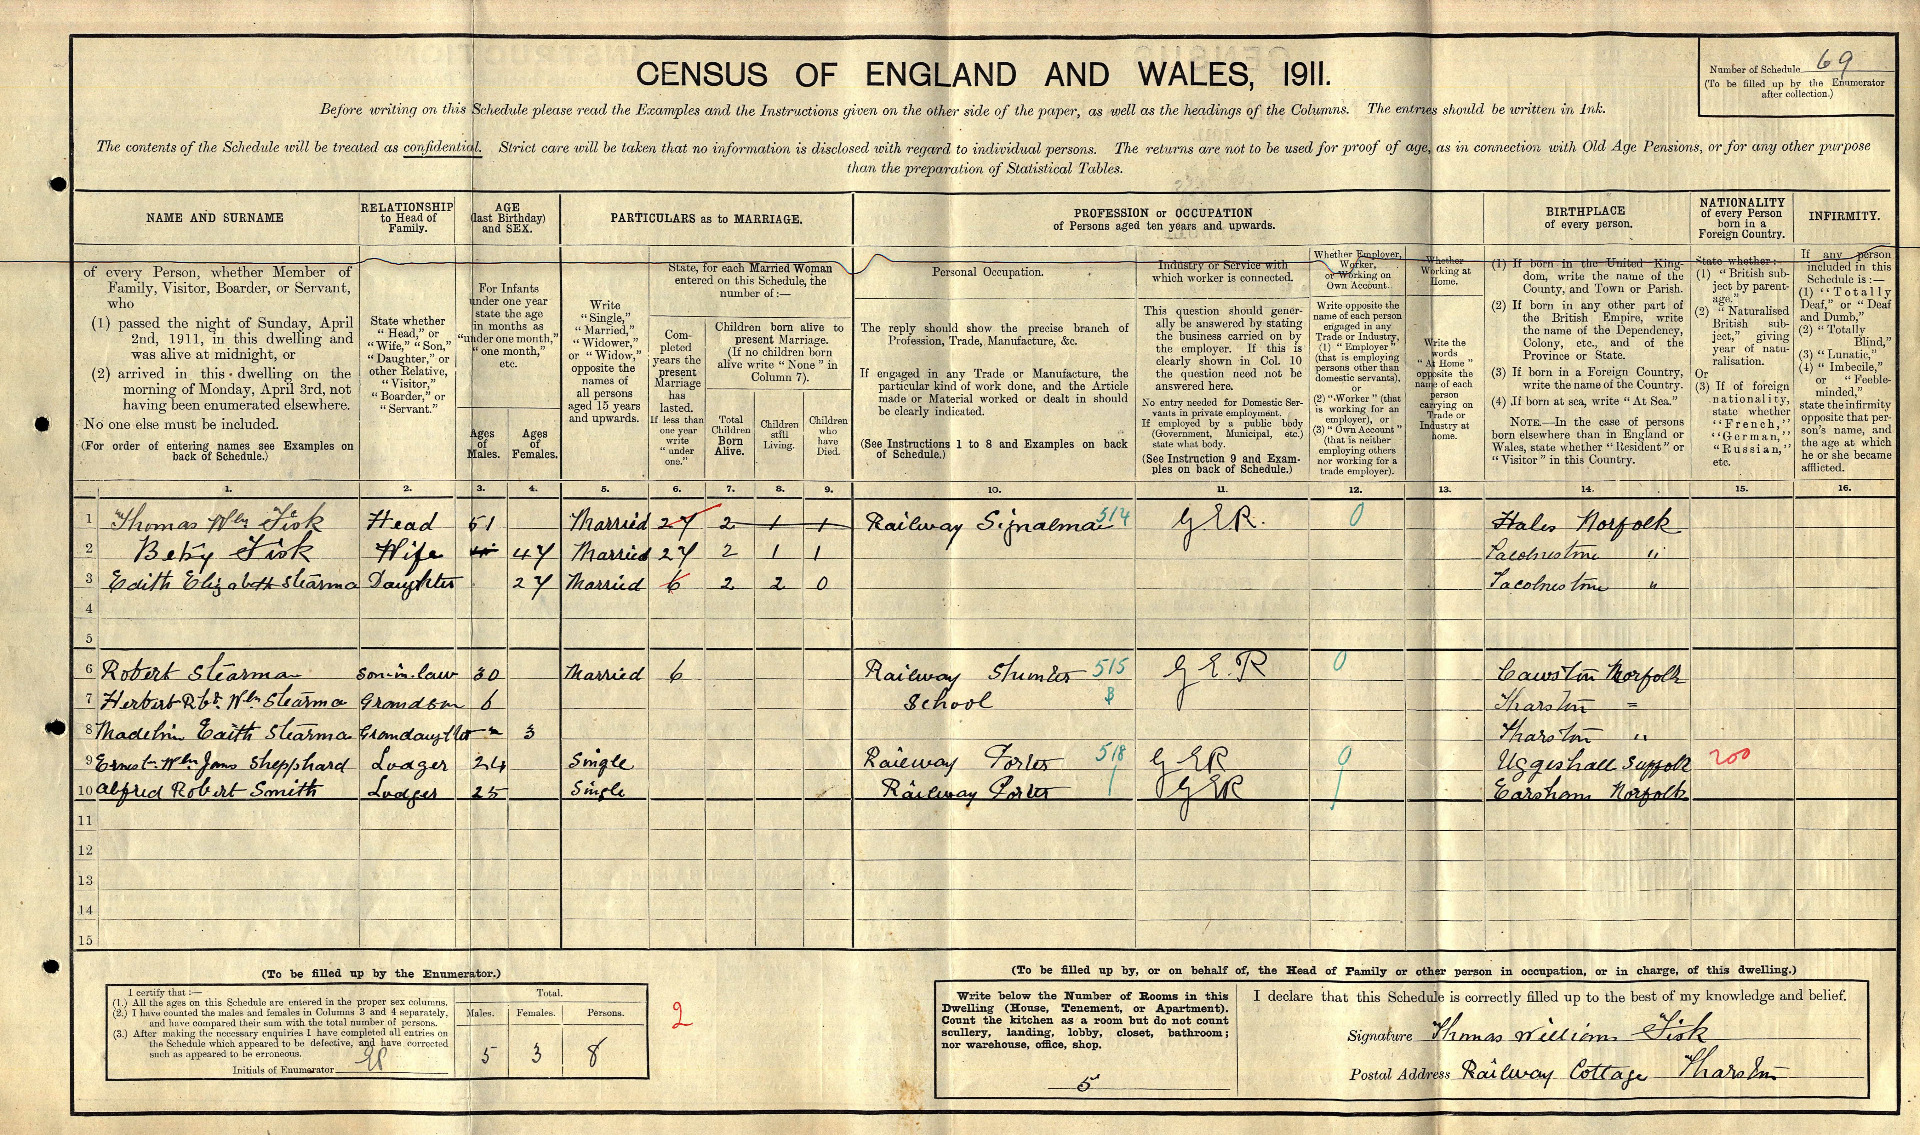 CENSUS OF ENGLAND AND WALES, 1911.
Number of Schedule 69
(To be filled up by the Enumerator
after collection.)
Before writing on this Schedule please read the Examples and the Instructions given on the other side of the paper, as well as the headings of the Columns. The entries should be written in Ink.
The contents of the Schedule will be treated as confidential. Strict care will be taken that no information is disclosed with regard to individual persons. The returns are not to be used for proof of age, as in connection with Old Age Pensions, or for any other purpose
than the preparation of Statistical Tables.
NAME AND SURNAME
of every Person, whether Member of
Family, Visitor, Boarder, or Servant,
who
(1) passed the night of Sunday, April
2nd, 1911, in this dwelling and
was alive at midnight, or
(2) arrived in this dwelling on the
morning of Monday, April 3rd, not
having been enumerated elsewhere.
No one else must be included.
(For order of entering names see Examples on
back of Schedule.)
RELATIONSHIP
to Head of
Family.
State whether
"Head," or
"Wife," "Son,"
"Daughter," or
other Relative,
"Visitor,"
"Boarder," or
"Servant."
AGE
(last Birthday)
and SEX.
For Infants
under one year
state the age
in months as
"under one month,"
"one month,"
etc.
Ages
of
Males.
Ages
of
Females.
PARTICULARS as to MARRIAGE.
Write
"Single,"
"Married,"
"Widower,"
or "Widow,"
opposite the
names of
all persons
aged 15 years
and upwards.
State, for each Married Woman
entered on this Schedule, the
number of:—
Completed
years the
present
Marriage
has
lasted.
If less than
one year
write
"under
one."
Children born alive to
present Marriage.
(If no children born
alive write "None" in
Column 7).
Total
Children
Born
Alive.
Children
still
Living.
Children
who
have
Died.
PROFESSION or OCCUPATION
of Persons aged ten years and upwards.
Personal Occupation.
The reply should show the precise branch of
Profession, Trade, Manufacture, &c.
If engaged in any Trade or Manufacture, the
particular kind of work done, and the Article
made or Material worked or dealt in should
be clearly indicated.
(See Instructions 1 to 8 and Examples on back
of Schedule.)
Industry or Service with
which worker is connected.
This question should gener-
ally be answered by stating
the business carried on by
the employer. If this is
clearly shown in Col. 10
the question need not be
answered here.
No entry needed for Domestic Ser-
vants in private employment.
If employed by a public body
(Government, Municipal, etc.)
state what body.
(See Instruction 9 and Exam-
ples on back of Schedule.)
Whether Employer,
Worker,
or Working on
Own Account.
Write opposite the
name of each person
engaged in any
Trade or Industry,
(1) "Employer"
(that is employing
persons other than
domestic servants),
or
(2) "Worker" (that
is working for an
employer), or
(3) "Own Account"
(that is neither
employing others
nor working for a
trade employer).
Whether
Working at
Home.
Write the
words
"At Home"
opposite the
name of each
person
carrying on
Trade or
Industry at
home.
BIRTHPLACE
of every person.
(1) If born in the United King-
dom, write the name of the
County, and Town or Parish.
(2) If born in any other part of
the British Empire, write
the name of the Dependency,
Colony, etc., and of the
Province or State.
(3) If born in a Foreign Country,
write the name of the Country.
(4) If born at sea, write "At Sea."
NOTE.—In the case of persons
born elsewhere than in England or
Wales, state whether "Resident" or
"Visitor" in this Country.
NATIONALITY
of every Person
born in a
Foreign Country.
State whether:
(1) "British sub-
ject by parent-
age."
(2) "Naturalised
British sub-
ject," giving
year of natu-
ralisation.
Or
(3) If of foreign
nationality,
state whether
"French,"
"German,"
"Russian,"
etc.
INFIRMITY.
If any person
included in this
Schedule is:—
(1) "Totally
Deaf," or "Deaf
and Dumb,"
(2) "Totally
Blind,"
(3) "Lunatic,"
(4) "Imbecile,"
or "Feeble-
minded,"
state the infirmity
opposite that per-
son's name, and
the age at which
he or she became
afflicted.
1. 2. 3. 4. 5. 6. 7. 8. 9. 10. 11. 12. 13. 14. 15. 16.
1 Thomas Wm Fisk Head 51 Married 27 2 1 1 Railway Signalman 514 GER. 0 Hales Norfolk
2 Betsy Fisk Wife 47 Married 27 2 1 1 Tacolnestone "
3 Edith Elizabeth Stearman Daughter 27 Married 6 2 2 0 Tacolnestone "
4
5
6 Robert Stearman son-in-law 30 Married 6 Railway Shunter 515 GER 0 Cawston Norfolk
7 Herbert Rbt Wm Stearman Grandson 6 School Tharston =
8 Madelin Edith Stearman Grandaughter 3 Tharston "
9 Ernest Wm Jams Shepphard Lodger 24 Single Railway Porter 518 GER 0 Uggeshall Suffolk 200
10 Alfred Robert Smith Lodger 25 Single Railway Porter GER Earsham Norfolk
11
12
13
14
15
(To be filled up by the Enumerator.)
I certify that:—
(1.) All the ages on this Schedule are entered in the proper sex columns.
(2.) I have counted the males and females in Columns 3 and 4 separately,
and have compared their sum with the total number of persons.
(3.) After making the necessary enquiries I have completed all entries on
the Schedule which appeared to be defective, and have corrected
such as appeared to be erroneous.
Initials of Enumerator
Total.
Males. Females. Persons.
5 3 8
2
(To be filled up by, or on behalf of, the Head of Family or other person in occupation, or in charge, of this dwelling.)
Write below the Number of Rooms in this
Dwelling (House, Tenement, or Apartment).
Count the kitchen as a room but do not count
scullery, landing, lobby, closet, bathroom;
nor warehouse, office, shop.
5
I declare that this Schedule is correctly filled up to the best of my knowledge and belief.
Signature Thomas William Fisk
Postal Address Railway Cottage Tharston